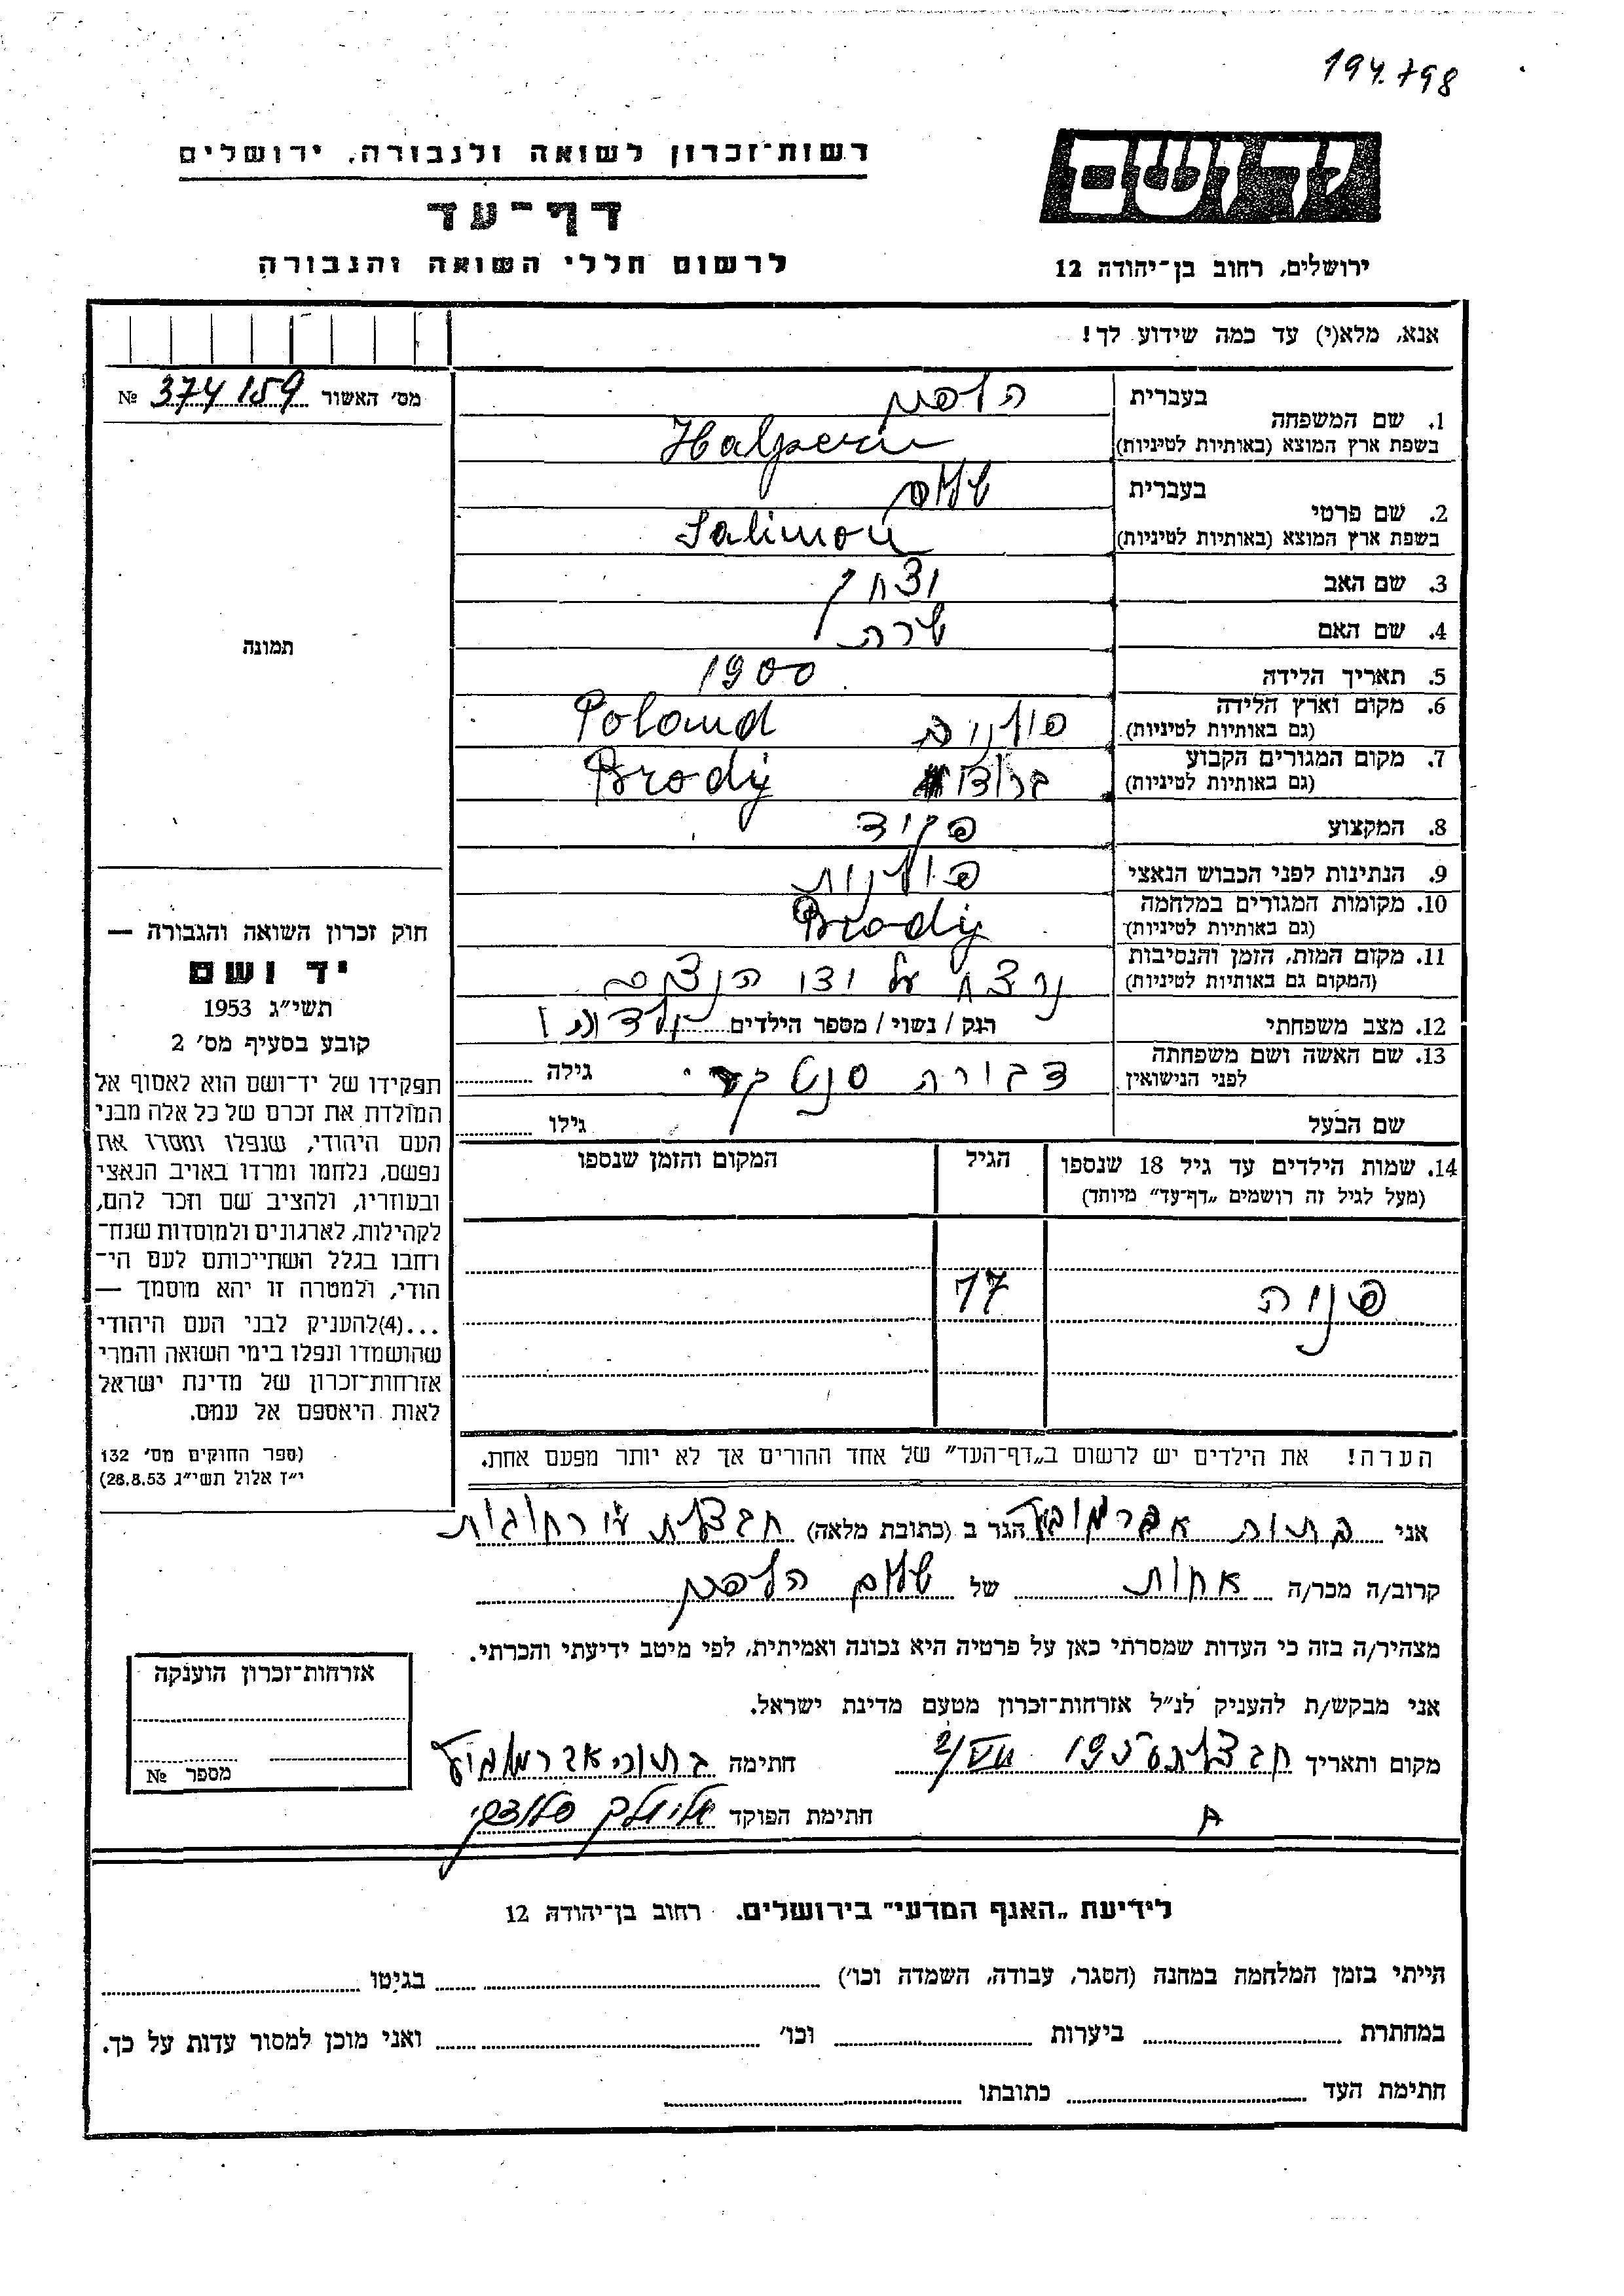 194.798
רשות-זכרון לשואה ולגבורה, ירושלים
דף-עד
לרשום חללי השואה והגבורה
יד ושם
ירושלים, רחוב בן-יהודה 12
אנא, מלא(י) עד כמה שידוע לך!
מס׳ האשור 374159 №
תמונה
1. שם המשפחה
בעברית
בשפת ארץ המוצא (באותיות לטיניות) Halperin
2. שם פרטי
בעברית שלום
בשפת ארץ המוצא (באותיות לטיניות) Salimon
3. שם האב יצחק
4. שם האם שרה
5. תאריך הלידה 1900
6. מקום וארץ הלידה פולניה Poland
(גם באותיות לטיניות)
7. מקום המגורים הקבוע ברודי Brody
(גם באותיות לטיניות)
8. המקצוע פקיד
9. הנתינות לפני הכבוש הנאצי פולנית
10. מקומות המגורים במלחמה Brody
(גם באותיות לטיניות)
11. מקום המות, הזמן והנסיבות נרצח על ידי הנצים
(המקום גם באותיות לטיניות)
12. מצב משפחתי רוק / נשוי / מספר הילדים 1
13. שם האשה ושם משפחתה דבורה גילה
לפני הנישואין
שם הבעל גילו
14. שמות הילדים עד גיל 18 שנספו הגיל המקום והזמן שנספו
(מעל לגיל זה רושמים „דף-עד״ מיוחד)
פניה 17
הערה! את הילדים יש לרשום ב„דף-העד״ של אחד ההורים אך לא יותר מפעם אחת.
חוק זכרון השואה והגבורה —
יד ושם
תשי״ג 1953
קובע בסעיף מס׳ 2
תפקידו של יד-ושם הוא לאסוף אל
המולדת את זכרם של כל אלה מבני
העם היהודי, שנפלו ומסרו את
נפשם, נלחמו ומרדו באויב הנאצי
ובעוזריו, ולהציב שם וזכר להם,
לקהילות, לארגונים ולמוסדות שנח-
רחבו בגלל השתייכותם לעם הי-
הודי, ולמטרה זו יהא מוסמך —
...(4)להעניק לבני העם היהודי
שהושמדו ונפלו בימי השואה והמרי
אזרחות-זכרון של מדינת ישראל
לאות היאספם אל עמם.
(ספר החוקים מס׳ 132
י״ז אלול תשי״ג 28.8.53)
אני בתיה אברמוביץ הגר ב (כתובת מלאה) חבצלת
קרוב/ה מכר/ה אחות של שלום הלפרין
מצהיר/ה בזה כי העדות שמסרתי כאן על פרטיה היא נכונה ואמיתית, לפי מיטב ידיעתי והכרתי.
אני מבקש/ת להעניק לנ״ל אזרחות-זכרון מטעם מדינת ישראל.
מקום ותאריך חתימה בתיה אברמוביץ
חתימת הפוקד
אזרחות-זכרון הוענקה
מספר №
לידיעת „האגף המדעי״ בירושלים. רחוב בן-יהודה 12
הייתי בזמן המלחמה במחנה (הסגר, עבודה, השמדה וכו׳) בגיטו
במחתרת ביערות וכו׳ ואני מוכן למסור עדות על כך.
חתימת העד כתובתו